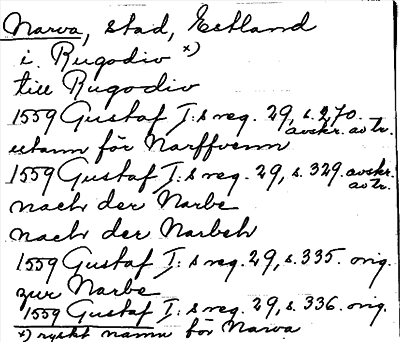 Narva, stad, Estland
i Rugodiv x)
till Rugodiv
1559 Gustaf I:s reg. 29, s. 270.
avskr. av tr.
utann för Narffvenn
1559 Gustaf I:s reg. 29, s. 329 avskr.
av tr.
nach der Narbe
nach der Narbeh
1559 Gustaf I:s reg. 29, s. 335. orig.
zur Narbe
1559 Gustaf I:s reg. 29, s. 336. orig.
x) ryskt namn för Narva